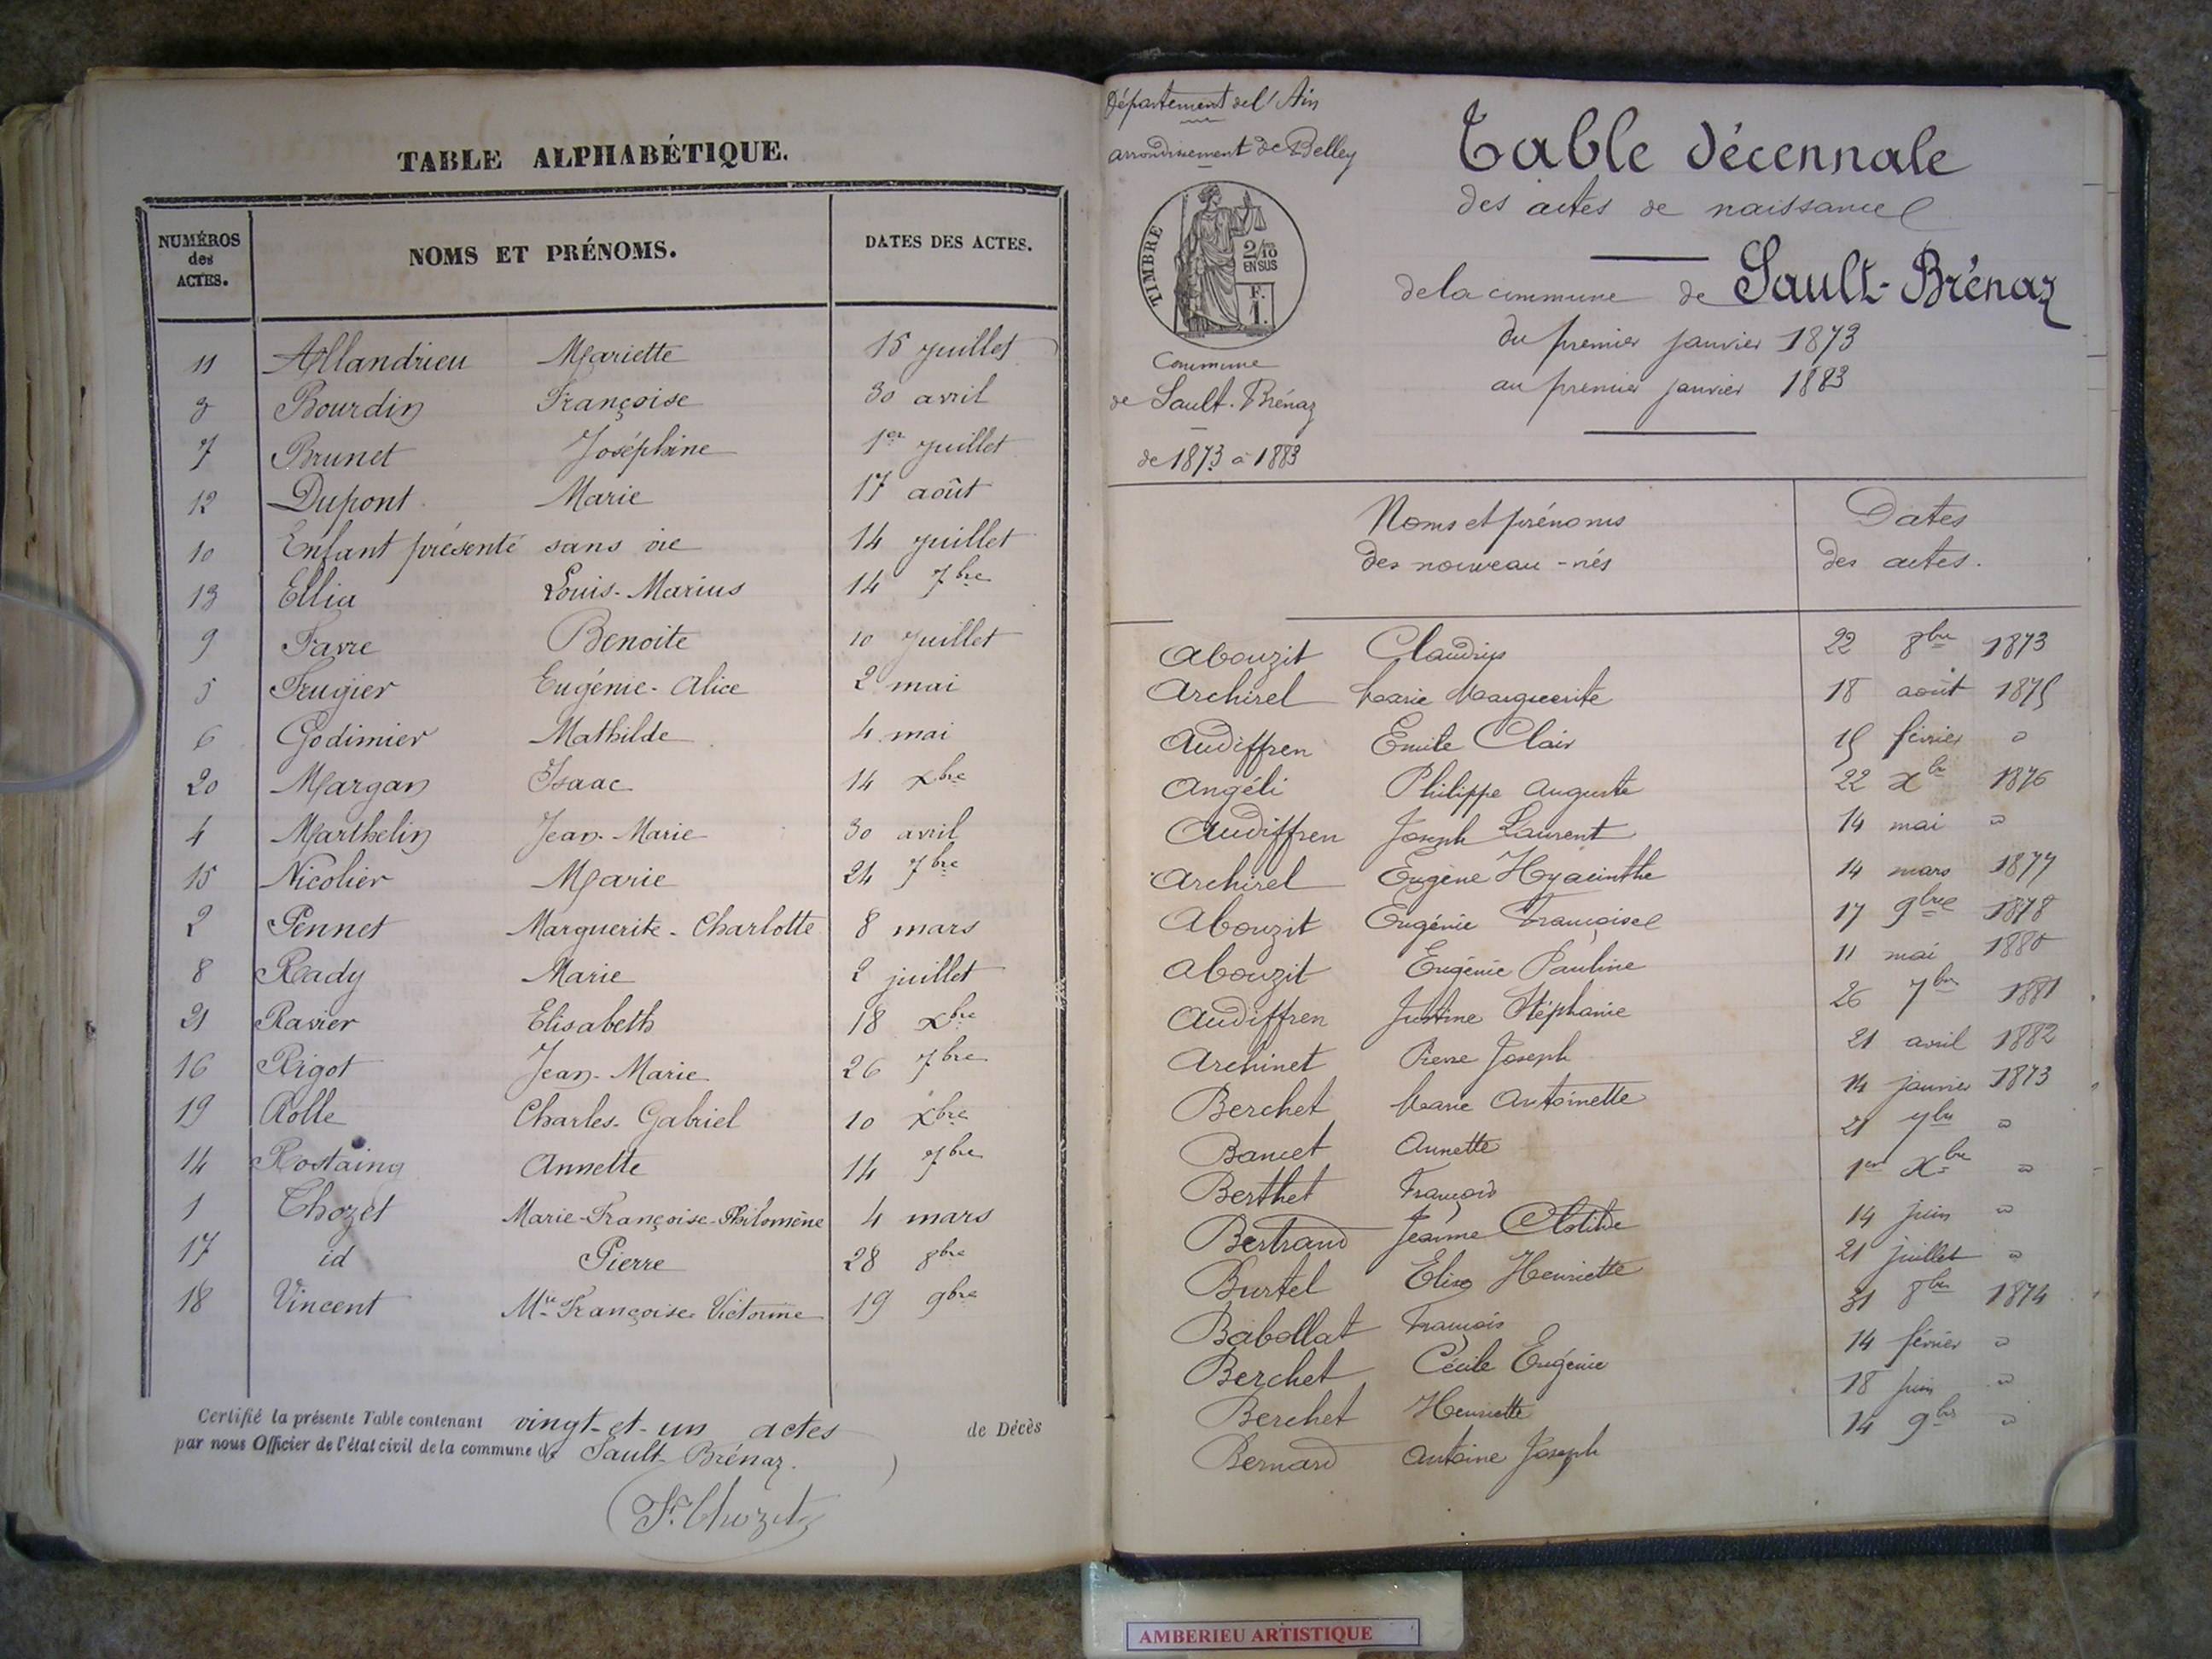 TABLE ALPHABÉTIQUE.
NUMÉROS des ACTES. NOMS ET PRÉNOMS. DATES DES ACTES.
11 Allandrieu Mariette 15 juillet
3 Bourdin Françoise 30 avril
7 Brunet Joséphine 1er juillet
12 Dupont Marie 17 août
10 Enfant présenté sans vie 14 juillet
13 Ellia Louis-Marius 14 7bre
9 Favre Benoite 10 juillet
5 Frugier Eugénie-Alice 2 mai
6 Godimier Mathilde 4 mai
20 Margan Isaac 14 xbre
4 Marthelin Jean-Marie 30 avril
15 Nicolier Marie 24 7bre
2 Pennet Marguerite-Charlotte 8 mars
8 Rady Marie 2 juillet
21 Ravier Elisabeth 18 xbre
16 Rigot Jean-Marie 26 7bre
19 Rolle Charles-Gabriel 10 xbre
14 Rostaing Annette 14 7bre
1 Thozet Marie-Françoise-Philomène 4 mars
17 id Pierre 28 8bre
18 Vincent Mie Françoise Victorine 19 9bre
Certifié la présente Table contenant vingt-et-un actes de Décès
par nous Officier de l'état civil de la commune de Sault-Brénaz.
F. Thozet
Département de l'Ain
arrondissement de Belley
TIMBRE
2/10
EN SUS
F.
1.
Commune
de Sault-Brénaz
de 1873 à 1883
Table décennale
des actes de naissance
de la commune de Sault-Brénaz
du premier janvier 1873
au premier janvier 1883
Noms et prénoms Dates
des nouveau-nés des actes.
Abouzit Claudius 22 8bre 1873
Archirel Marie Marguerite 18 août 1875
Audiffren Emile Clair 15 février "
Angéli Philippe Auguste 22 xbre 1876
Audiffren Joseph Laurent 14 mai "
Archirel Eugène Hyacinthe 14 mars 1877
Abouzit Eugénie Françoise 17 9bre 1878
Abouzit Eugénie Pauline 11 mai 1880
Audiffren Justine Stéphanie 26 7bre 1881
Archinet Pierre Joseph 21 avril 1882
Berchet Marie Antoinette 14 janvier 1873
Bancet Annette 21 7bre "
Berthet François 1er xbre "
Bertrand Jeanne Clotilde 14 juin "
Burtel Elisa Henriette 21 juillet "
Babollat François 31 8bre 1874
Berchet Cécile Eugénie 14 février "
Berchet Henriette 18 juin "
Bernard Antoine Joseph 14 9bre "
AMBERIEU ARTISTIQUE